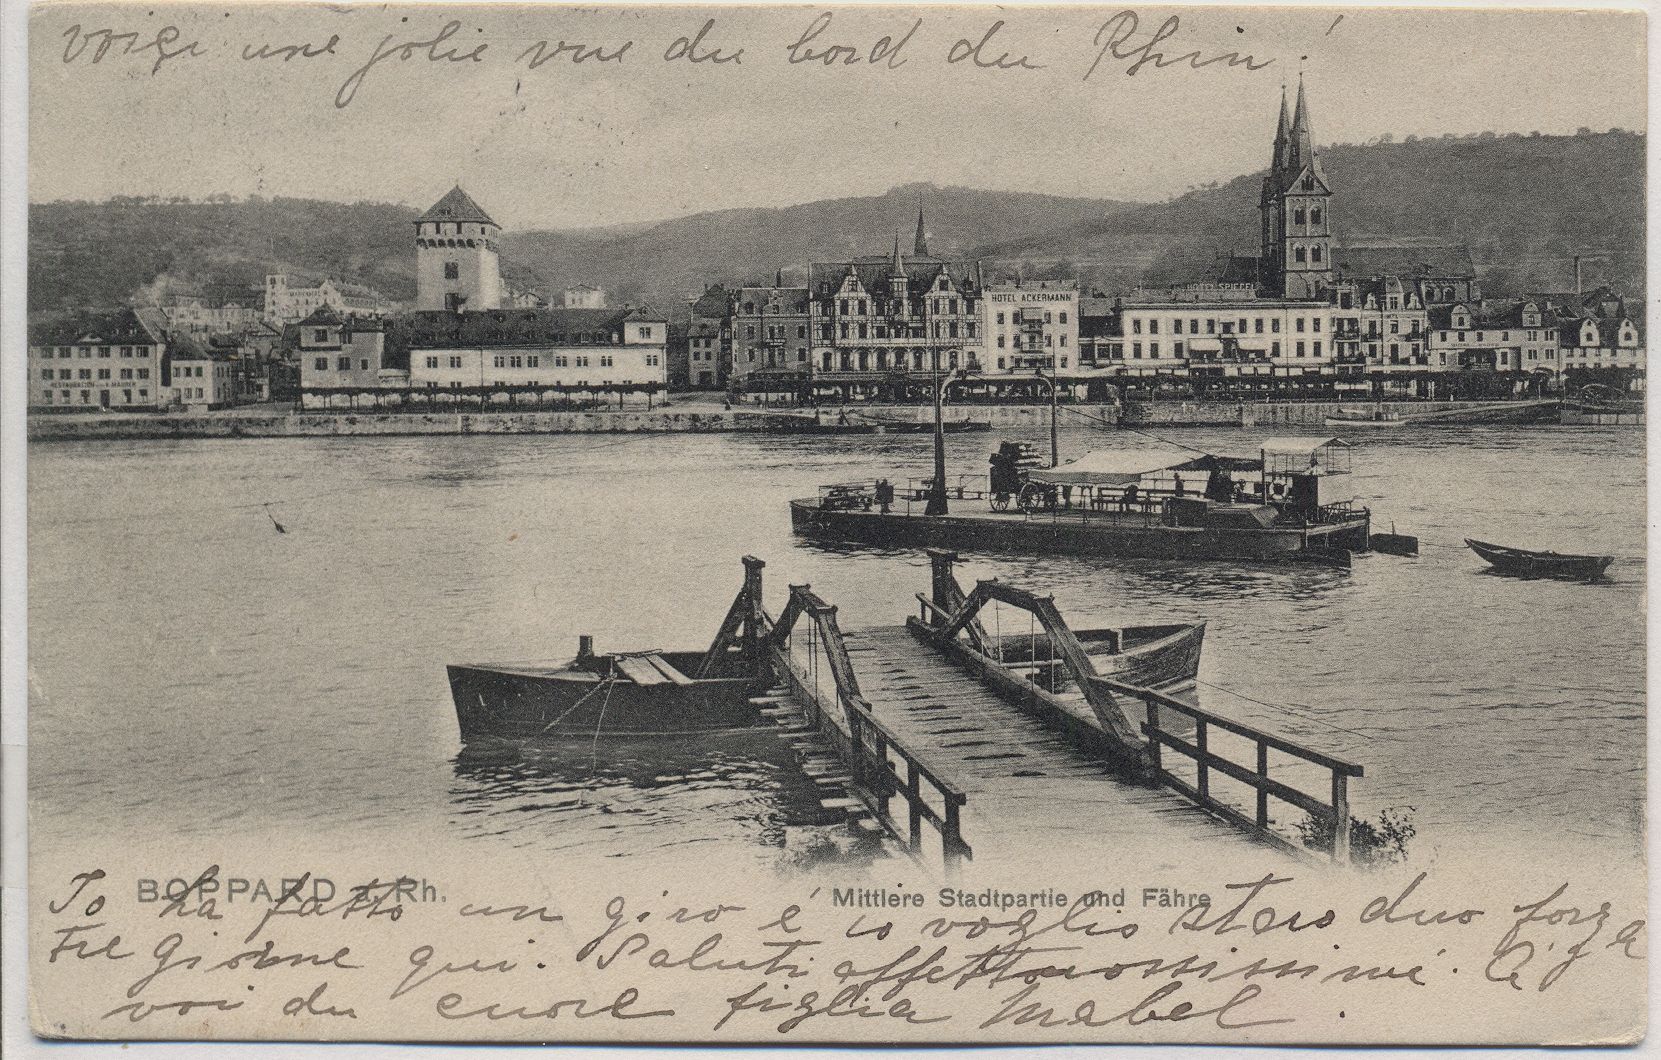 voiçi une jolie vue du bord du Rhin!
HOTEL ACKERMANN
HOTEL SPIEGEL
RESTAURATION
BOPPARD a. Rh.
Mittlere Stadtpartie und Fähre
Io ha fatto un giro é io voglio staro duo forza
tre giorne qui. Saluti affettuosissimi. é
voi du cuore figlia Mabel.